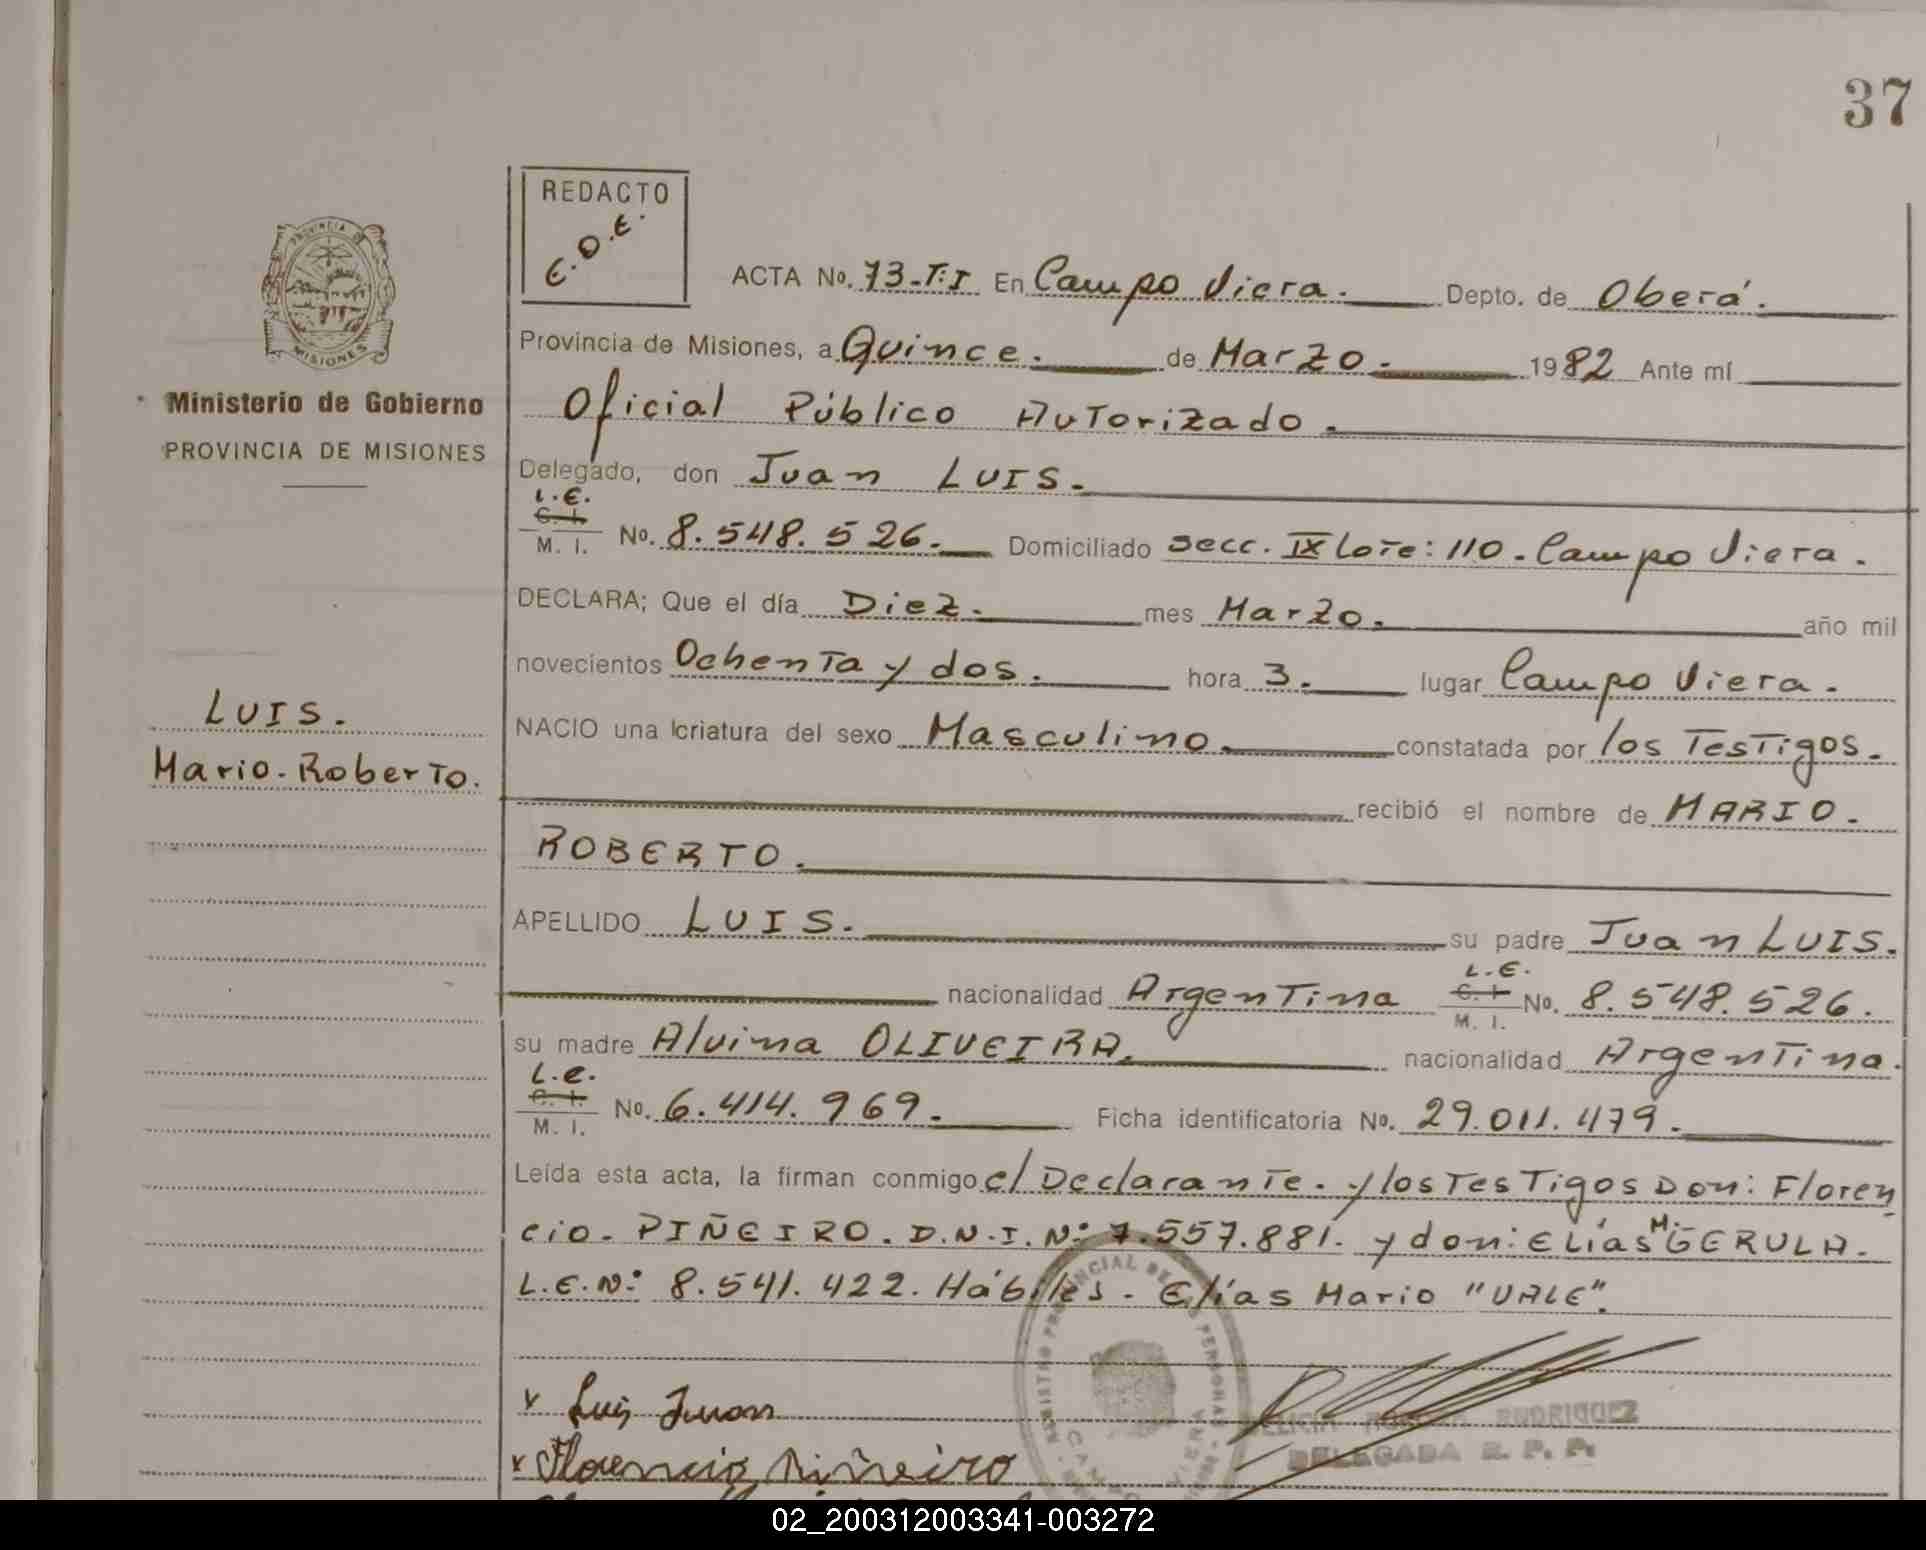 37
REDACTO
E.O.E.
PROVINCIA DE
MISIONES
Ministerio de Gobierno
PROVINCIA DE MISIONES
LUIS.
Mario-Roberto.
ACTA No. 73-T:I En Campo Viera. Depto. de Oberá.
Provincia de Misiones, a Quince. de Marzo. 1982 Ante mí
Oficial Público Autorizado.
Delegado, don Juan LUIS.
L.E.
C. I.
M. I. No. 8.548.526. Domiciliado Secc. IX Lote: 110-Campo Viera.
DECLARA; Que el día Diez. mes Marzo. año mil
novecientos Ochenta y dos. hora 3. lugar Campo Viera.
NACIO una criatura del sexo Masculino. constatada por los Testigos.
recibió el nombre de MARIO.
ROBERTO.
APELLIDO LUIS. su padre Juan LUIS.
nacionalidad Argentina L.E. C. I. M. I. No. 8.548.526.
su madre Alvina OLIVEIRA. nacionalidad Argentina.
L.C.
C. I.
M. I. No. 6.414.969. Ficha identificatoria No. 29.011.479.
Leída esta acta, la firman conmigo el Declarante. y los Testigos Don: Floren
cio-PIÑEIRO. D.N.I.Nº 7.557.881. y don: Elías M. GERULA.
L.E.Nº: 8.541.422. Hábiles. Elías Mario "VALE".
x Luis Juan
x Florencio Piñeiro
RODRIGUEZ
DELEGADA R. P. P.
02_200312003341-003272